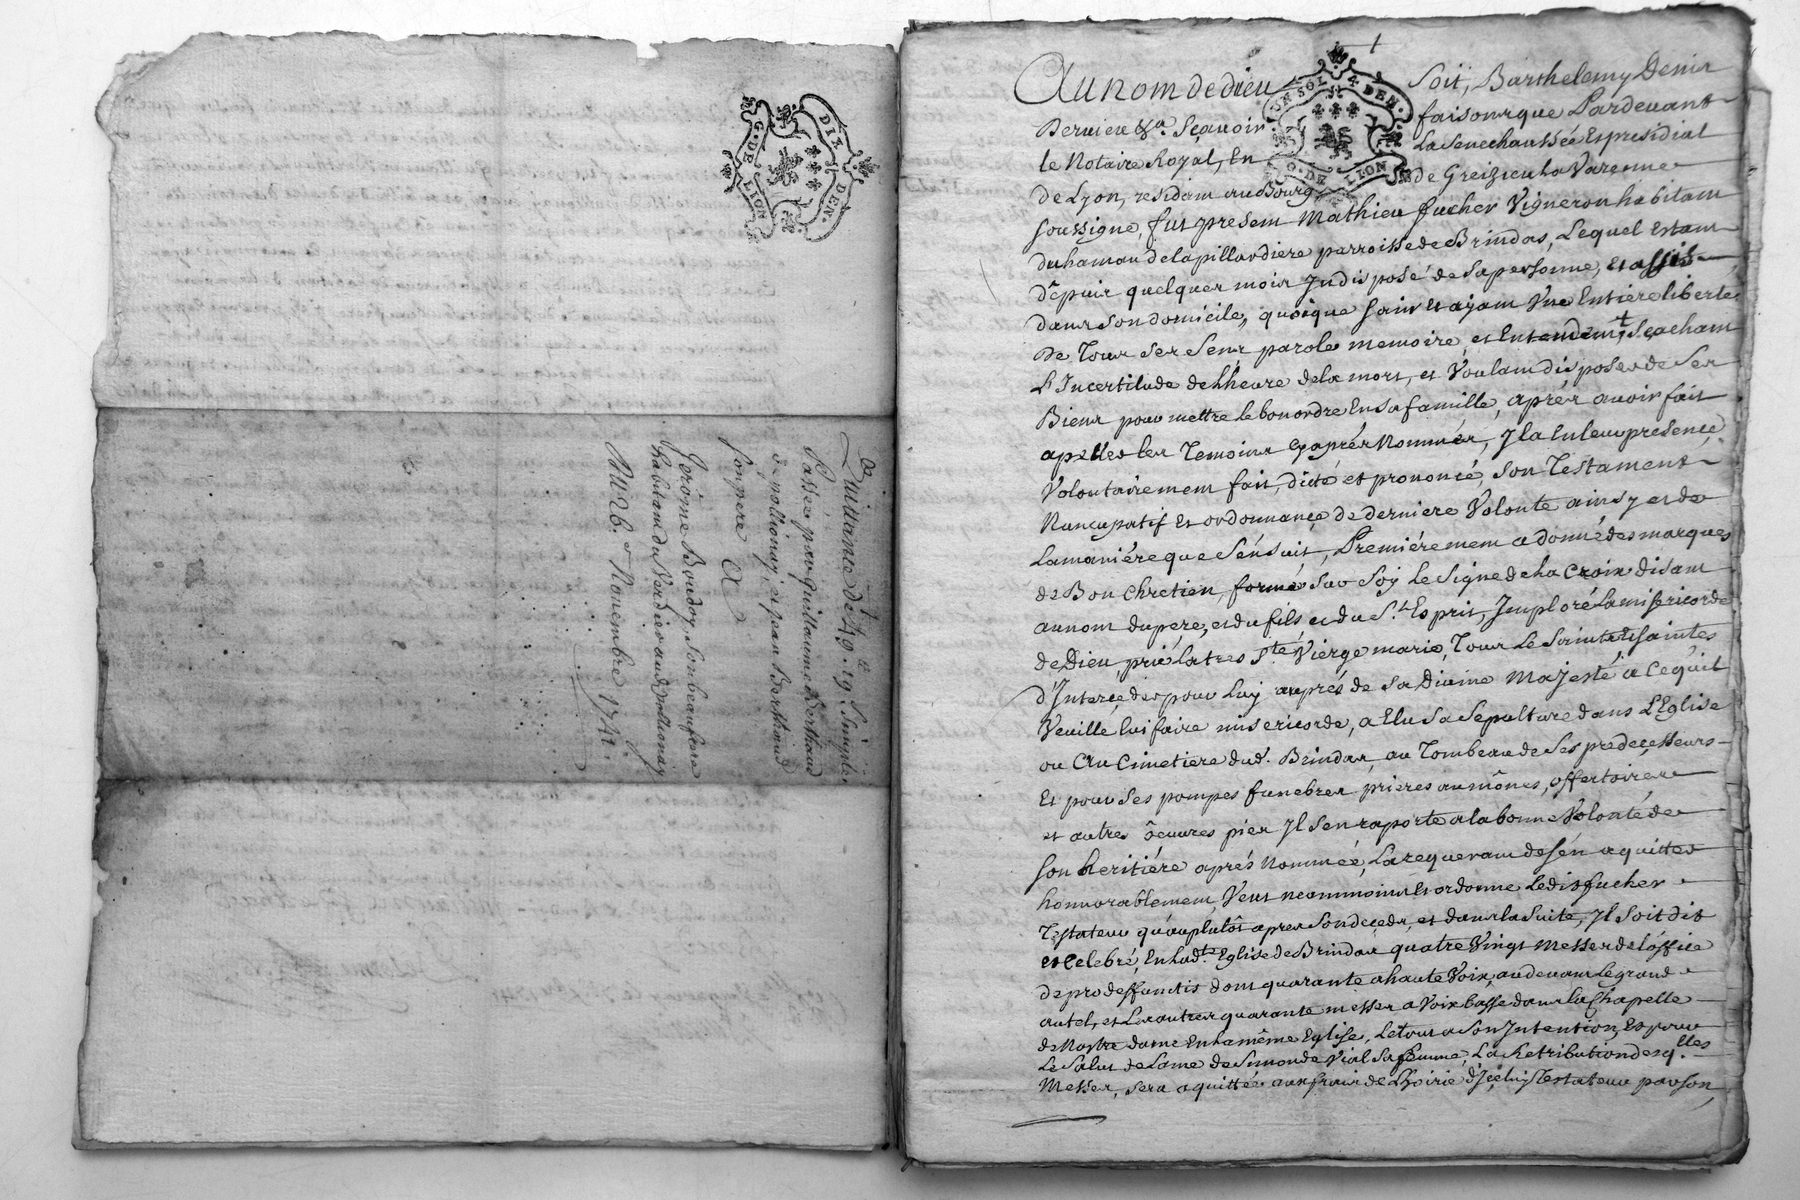 G. DE LION
DIX DEN.
De
Quittance de 49.lt 19 s. simple
Passée par Guillaume Berthaud
de pollionay, et Jean Berthaud
son pere A
Jerôme Bourdoy, son beaufrere
habitant du Verdier aud. pollionay
Du 26.e Novembre 1741.
1
Au nom de dieu
UN SOL 4 DEN.
G. DE LION
soit, Barthelemy Denis
Dervieu &a. Sçavoir faisons que Pardevant
le Notaire Royal, En La Senechaussée Et presidial
de Lyon, residant au Bourg de Greizieu la Varenne
soussigné, fut present Mathieu fucher Vigneron habitant
du hameau de la pillardiere parroisse de Brindas, Lequel Estant
dêpuis quelques mois Indisposé de sa personne, et assis
dans son domicile, quoique sain et ajant Vne Entiere liberté
De Tous ses sens parole memoire, et Entendemt, Sçachant
L'Incertitude de l'heure de la mort, et Voulant disposer de ses
Biens pour mettre le bon ordre En sa famille, aprés avoir fait
apeller les Temoins cy aprés Nommés, Il a En leur presence
Volontairement fait, dicté et prononcé, son Testament
Nuncupatif Et ordonnance de derniere Volonté ainsy et de
La maniére que s'énsuit, Premiérement a donné des marques
de Bon Chretien, formé sur soy le signe de la Croix disant
au nom du pere, et du fils et du St. Esprit, Imploré La misericorde
de Dieu, prié La tres Ste Vierge marie, Tous Le saints et saintes
d'Interceder pour Luy auprés de sa Divine Majesté a ce qu'il
Veuille lui faire misericorde, a Elu sa sepulture dans L'Eglise
ou Au Cimetiere dud. Brindas, au Tombeau de ses predecesseurs
Et pour ses pompes funebres, prieres aumônes, offertoires
et autres ôeuvres pies Il s'en raporte a la bonne Volonté de
son heritiére aprés Nommée, La requerant de s'én aquitter
honnorablement, Veut neammoins Et ordonne Ledit fucher
Testateur qu'auplutôt apres son deceds, et dans la suite, Il soit dit
et Celebré, En lad.te Eglise de Brindas quatre Vingt Messes de l'óffice
de pro deffunctis dont quarante a haute Voix, au devant Le grand
autel, et Les autres quarante messes a Voix basse dans la Chapelle
de Nostre dame En la même Eglise, Le tout a son Intention, Et pour
Le salut de L'ame de Simonde Vial sa femme, La Retribution desq.lles
Messes, sera aquittée aux frais de L'hoirie d'Iceluy Testateur par son